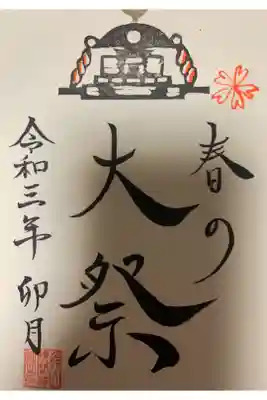 春の
大祭
令和三年 卯月